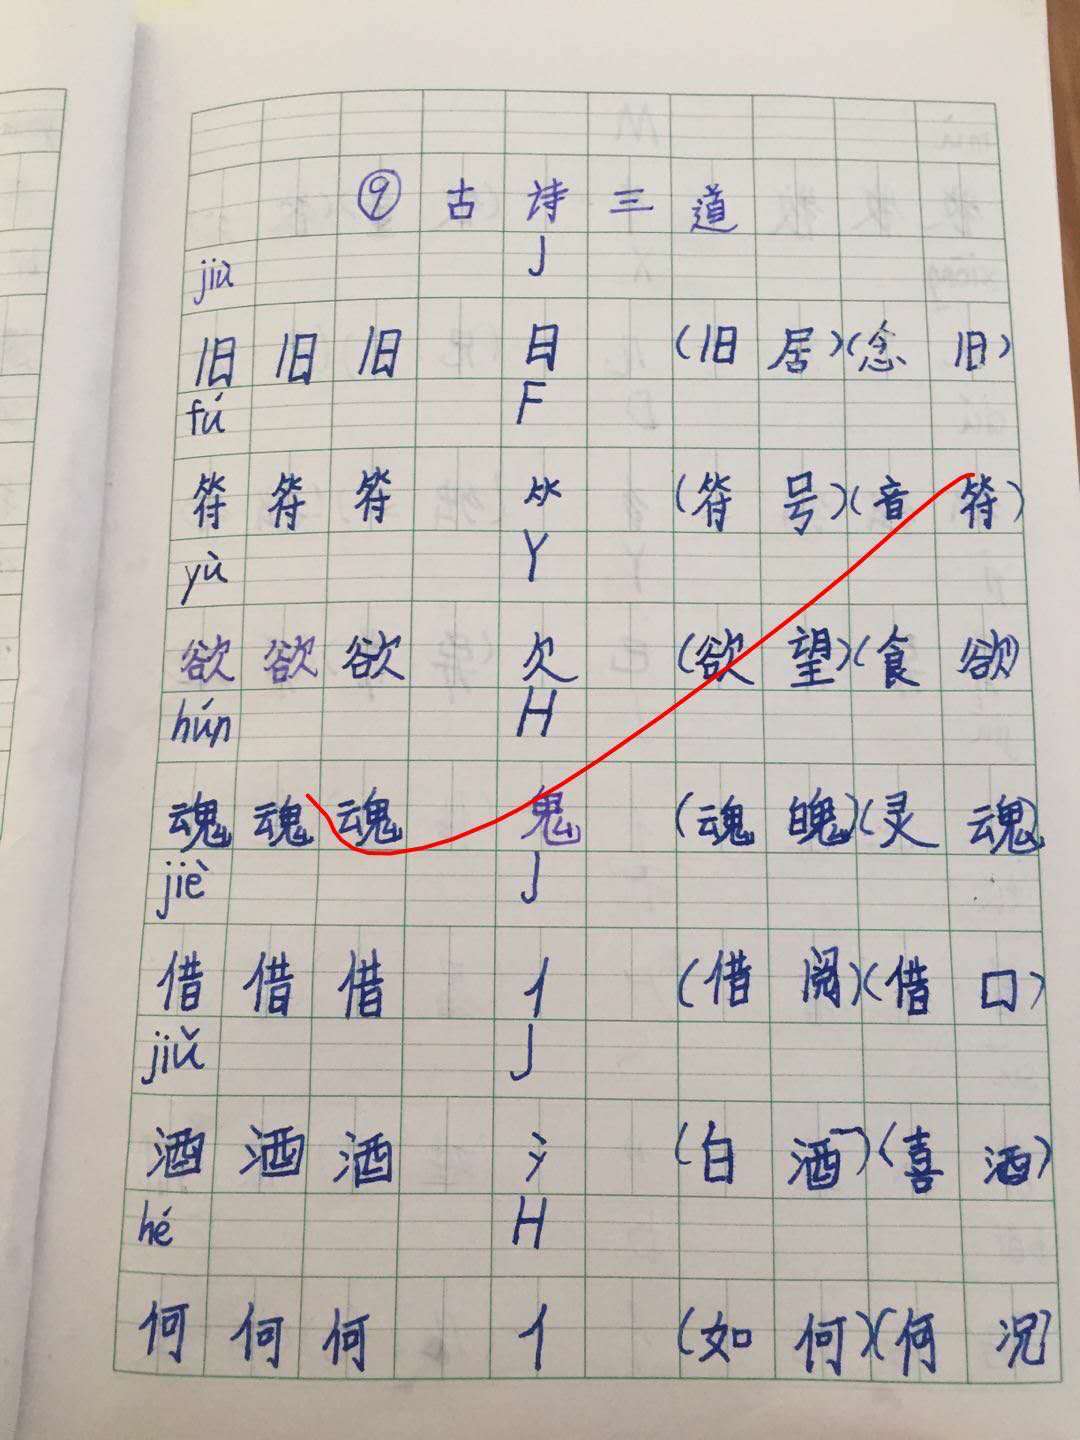 ⑨ 古诗三道
jiù J
旧旧旧 日 (旧居)(念旧)
fú F
符符符 ⺮ (符号)(音符)
yù Y
欲欲欲 欠 (欲望)(食欲)
hún H
魂魂魂 鬼 (魂魄)(灵魂)
jiè J
借借借 亻 (借阅)(借口)
jiǔ J
酒酒酒 氵 (白酒)(喜酒)
hé H
何何何 亻 (如何)(何况)